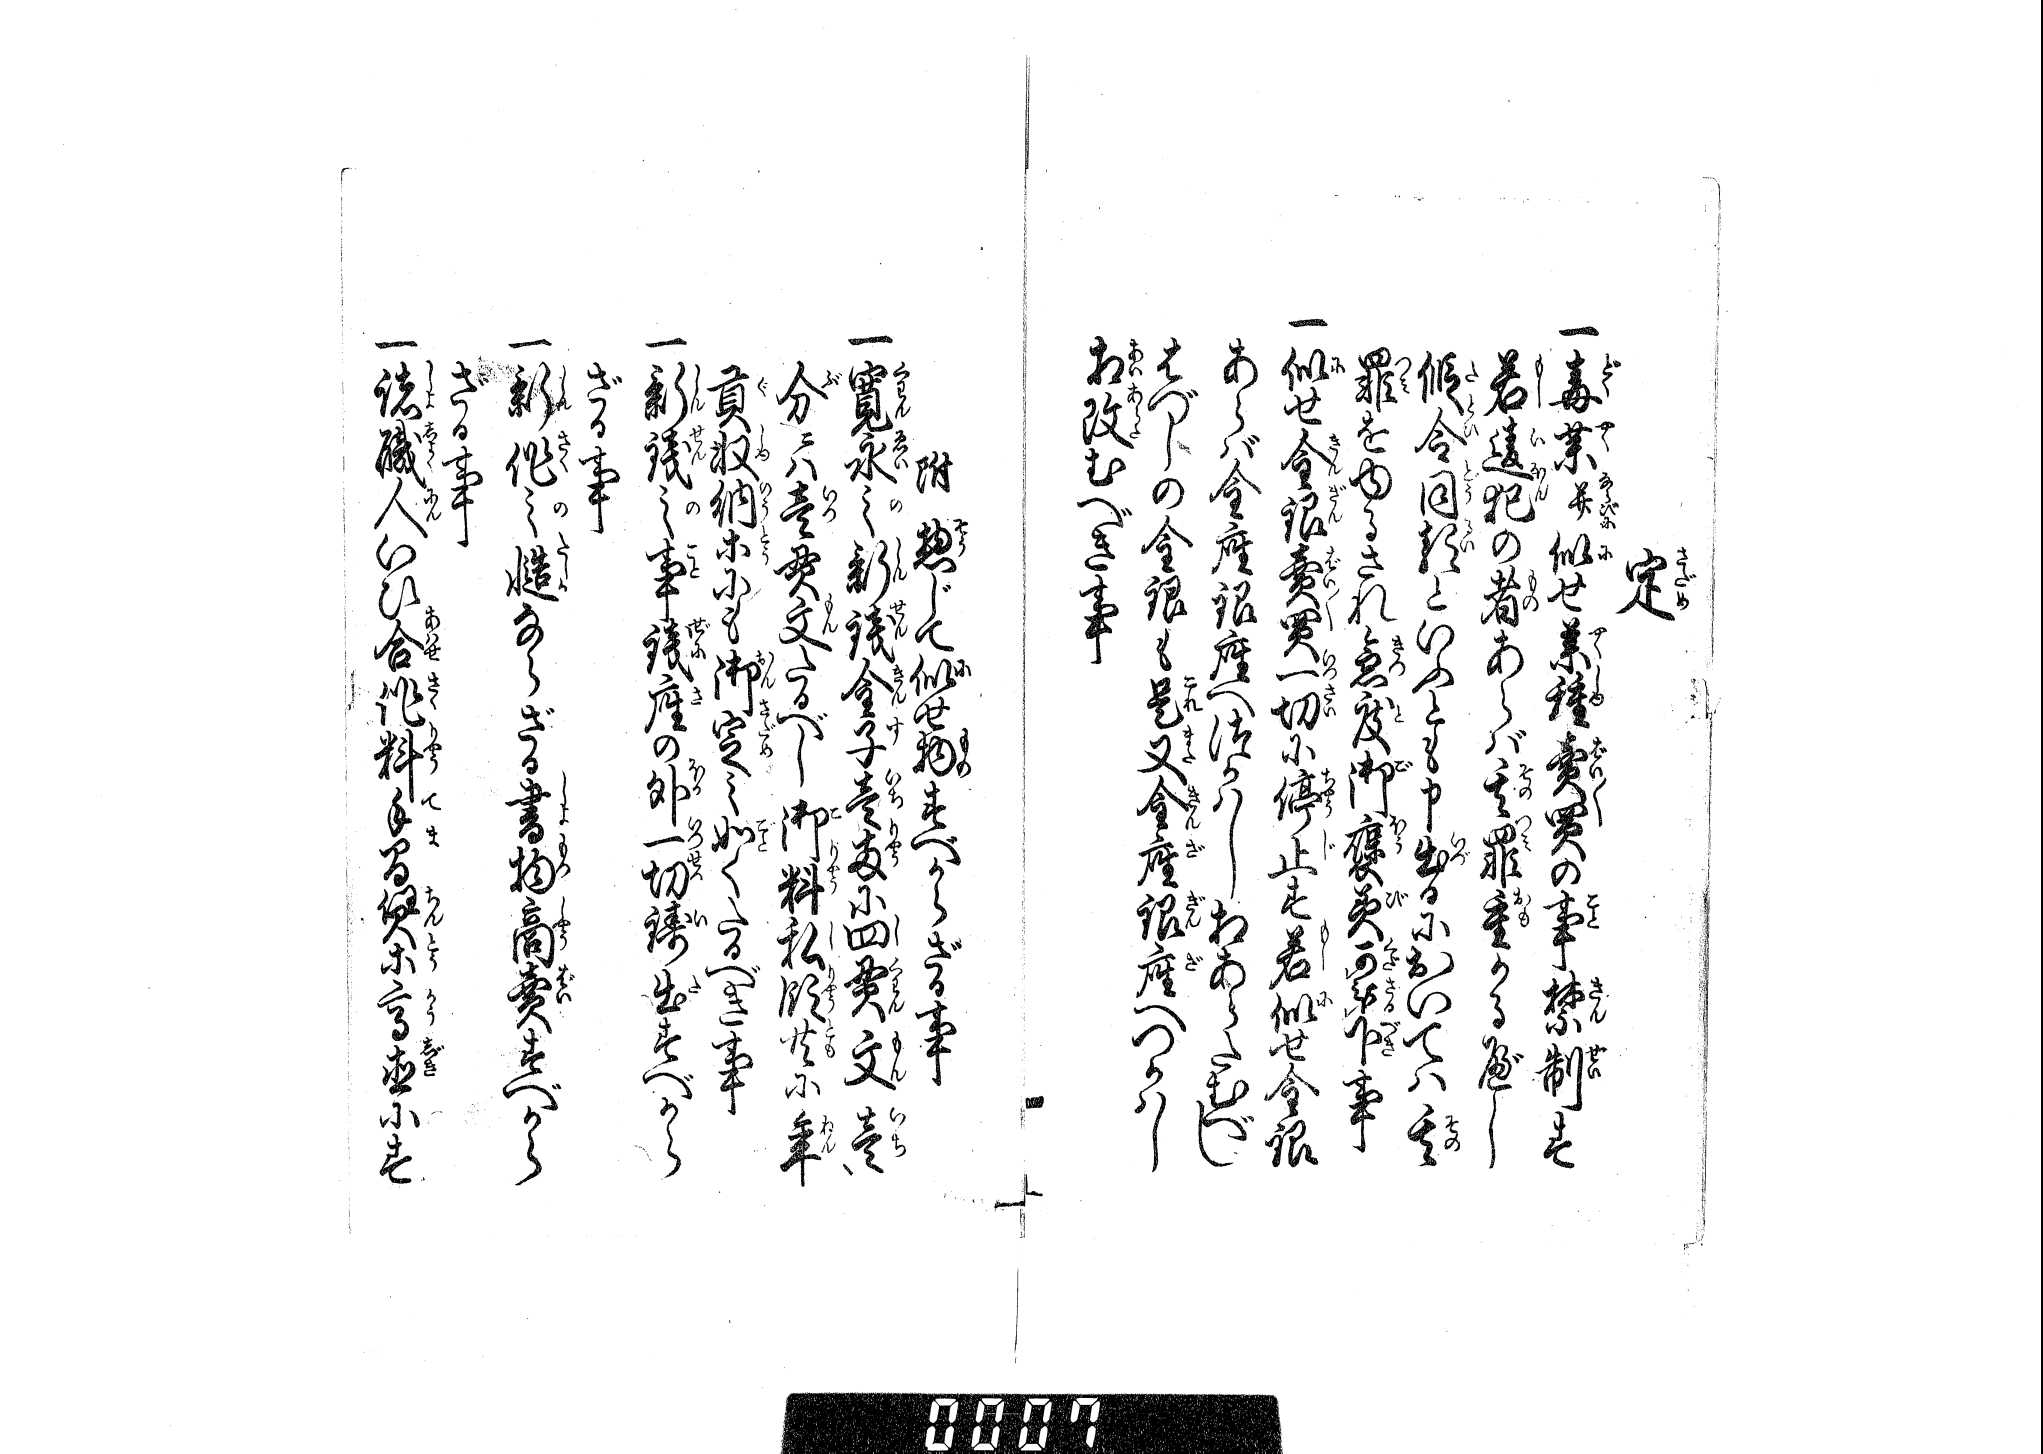 定
一毒薬并似せ薬種賣買の事禁制す
若違犯の者あらバ其罪重かる べし
仮令同類といふとも申出るにおいてハ其
罪をゆるされ急度御褒美可被下事
一似せ金銀賣買一切に停止す若似せ金銀
あらバ金座銀座へ遣ハし相あらたむべし
はづしの金銀も是又金座銀座へつかハし
相改むべき事
附 惣じて似せ物すべからざる事
一寛永之新錢金子壹両に四貫文壹
分ニハ壹貫文たるべし御料私領共に年
貢収納ホにも御定之如くたるべき事
一新錢之事錢座の外一切鋳出すべから
ざる事
一新作之慥ならざる書物商賣すべから
ざる事
一諸職人いひ合作料手間賃ホ高直にす
0007